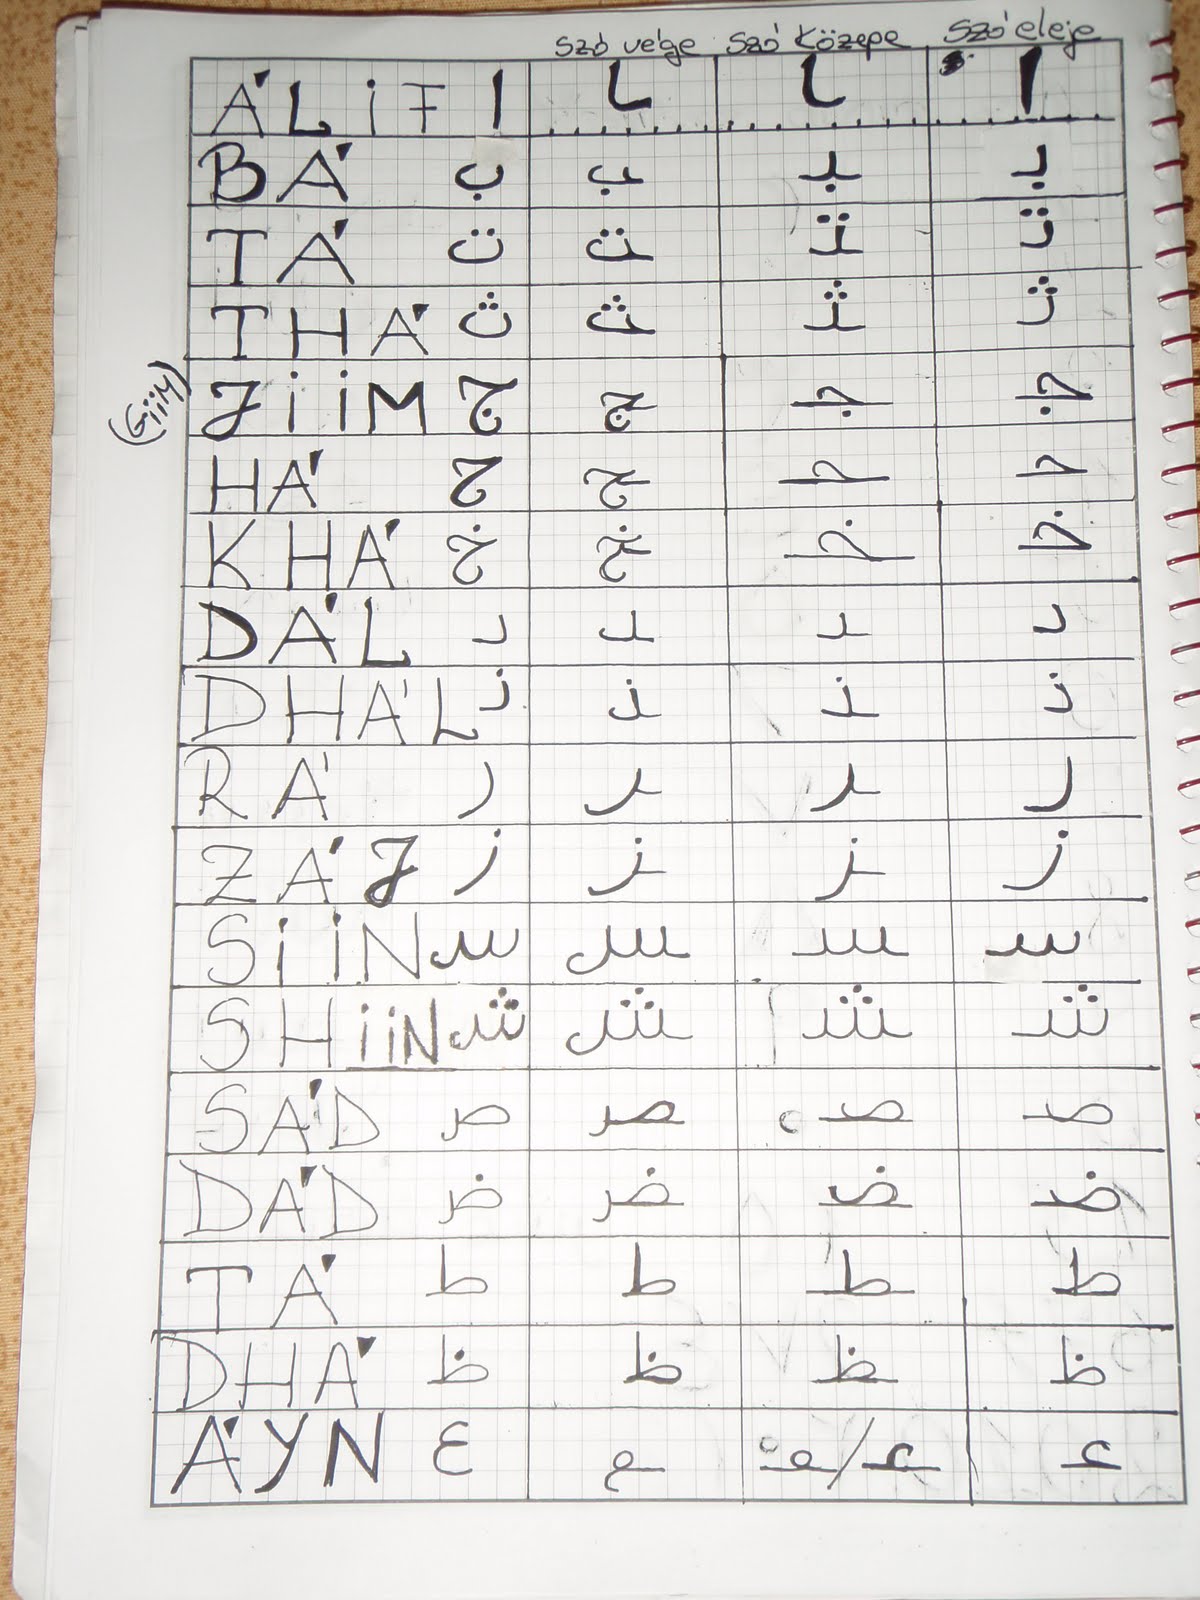 szó vége szó közepe szó eleje
ÁLiF ا ـا ـا ا
BÁ ب ـب ـبـ بـ
TÁ ت ـت ـتـ تـ
THÁ ث ـث ـثـ ثـ
(Giim) JiiM ج ـج ـجـ جـ
HÁ ح ـح ـحـ حـ
KHÁ خ ـخ ـخـ خـ
DÁL د ـد ـد د
DHÁL ذ ـذ ـذ ذ
RÁ ر ـر ـر ر
ZÁJ ز ـز ـز ز
SiiN س ـس ـسـ سـ
SHiiN ش ـش ـشـ شـ
SÁD ص ـص ـصـ صـ
DÁD ض ـض ـضـ ضـ
TÁ ط ـط ـطـ طـ
DHÁ ظ ـظ ـظـ ظـ
ÁYN ع ـع ـعـ/ـعـ عـ